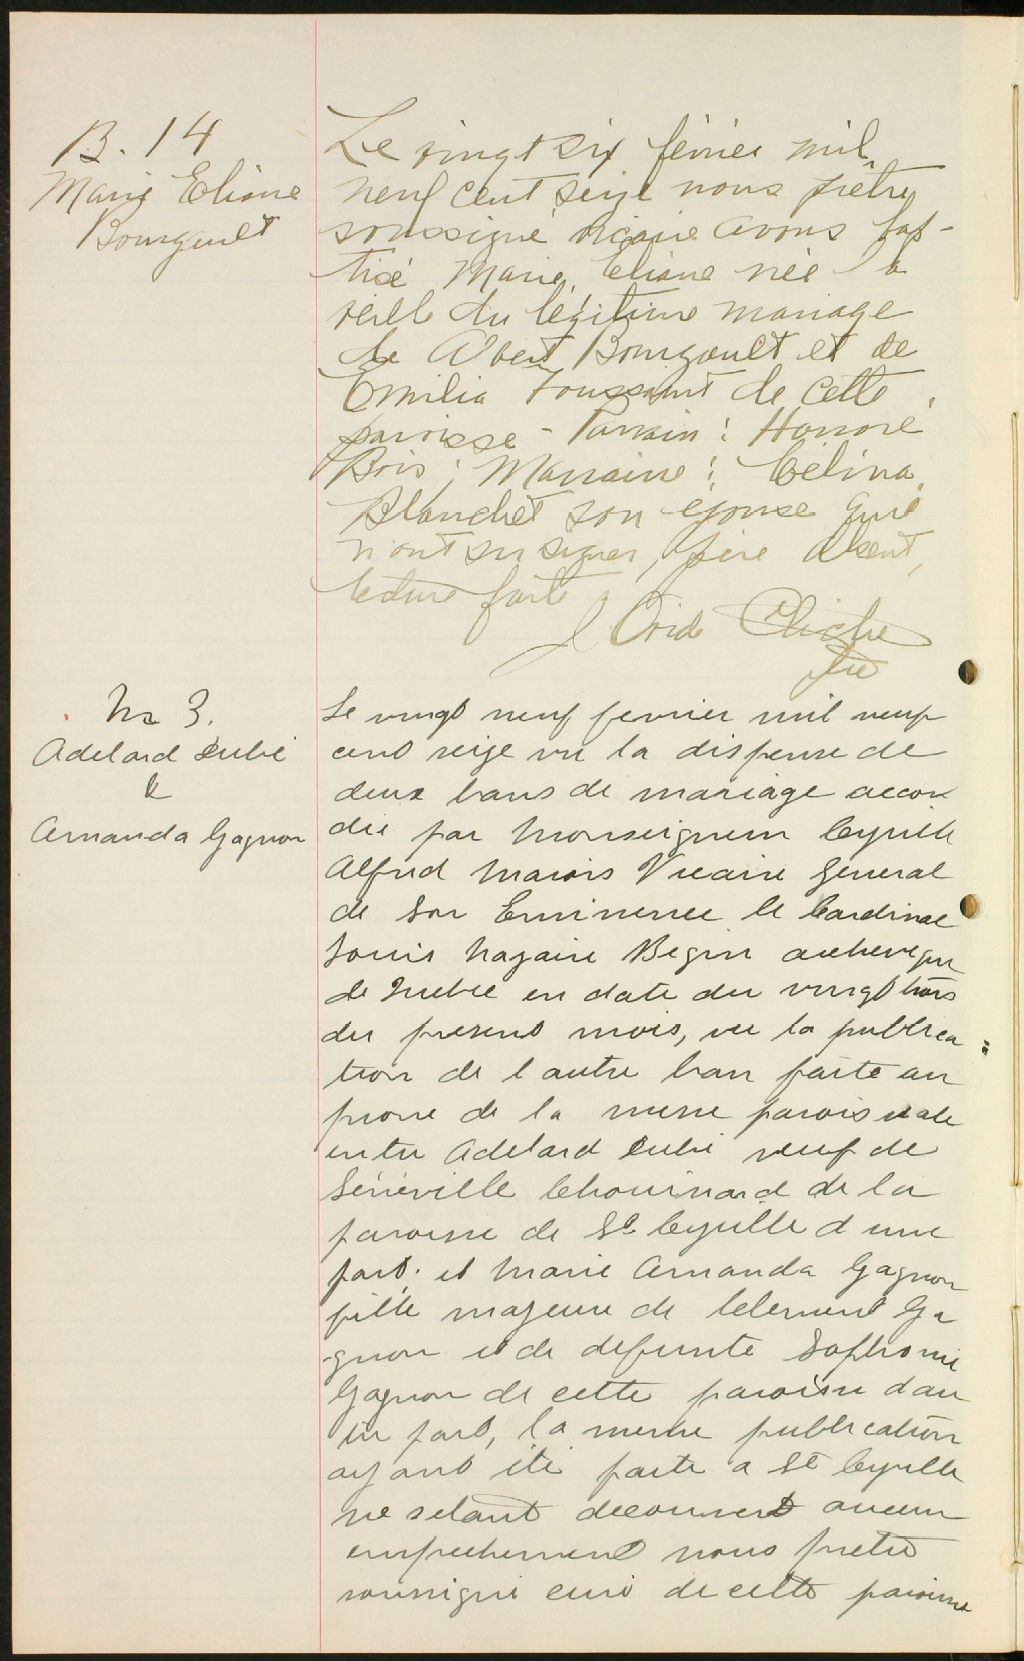 B. 14
Marie Eliane
Bourgault
Le vingt six février mil
neuf cent seize nous prêtre
soussigné vicaire avons bap-
tisé Marie Eliane née la
veille du légitime mariage
de Albert Bourgault et de
Emilia Toussaint de cette
paroisse - Parrain : Honoré
Bois ; Marraine : Célina
Blanchet son épouse qui
n'ont su signer, père absent,
lecture faite
J Ovide Cliche
Ptre
M 3.
Adelard Dubé
&
Amanda Gagnon
Le vingt neuf fevrier mil neuf
cent seize vu la dispense de
deux bans de mariage accor
dée par Monseigneur Cyrille
Alfred Marois Vicaire General
de Son Eminence le Cardinal
Louis Nazaire Begin archeveque
de Quebec en date du vingt trois
du present mois, vu la publica =
tion de l autre ban faite au
prone de la messe paroissiale
entre Adelard Dubé veuf de
Séneville Chouinard de la
paroisse de St Cyrille d une
part. et Marie Amanda Gagnon
fille majeure de Clement Ga
-gnon et de defunte Sophronie
Gagnon de cette paroisse d au
tre part, la meme publication
ayant été faite a St Cyrille
ne setant decouvert aucun
empechement nous pretre
soussigné curé de cette paroisse